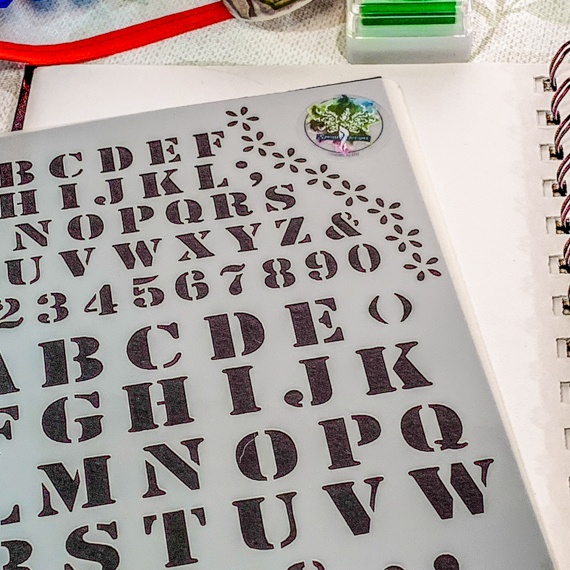 B C D E F
H I J K L ,
N O P Q R S
U V W X Y Z &
2 3 4 5 6 7 8 9 0
A B C D E ()
F G H I J K
L M N O P Q
R S T U V W